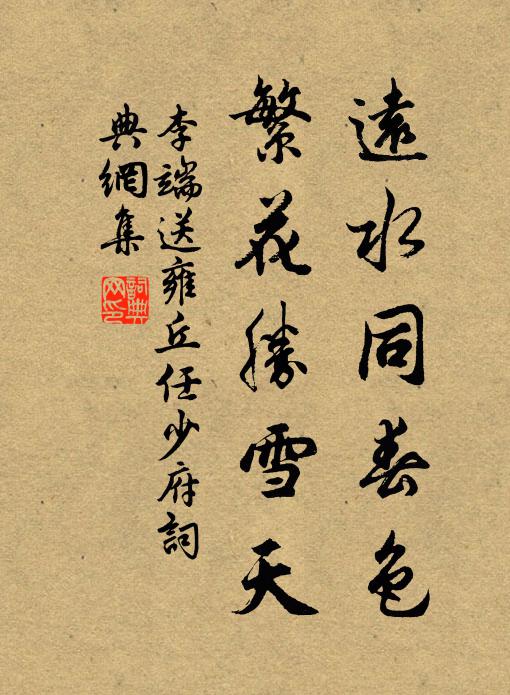 遠水同春色
繁花勝雪天
李端送雍丘任少府詞
典網集
詞典
网印